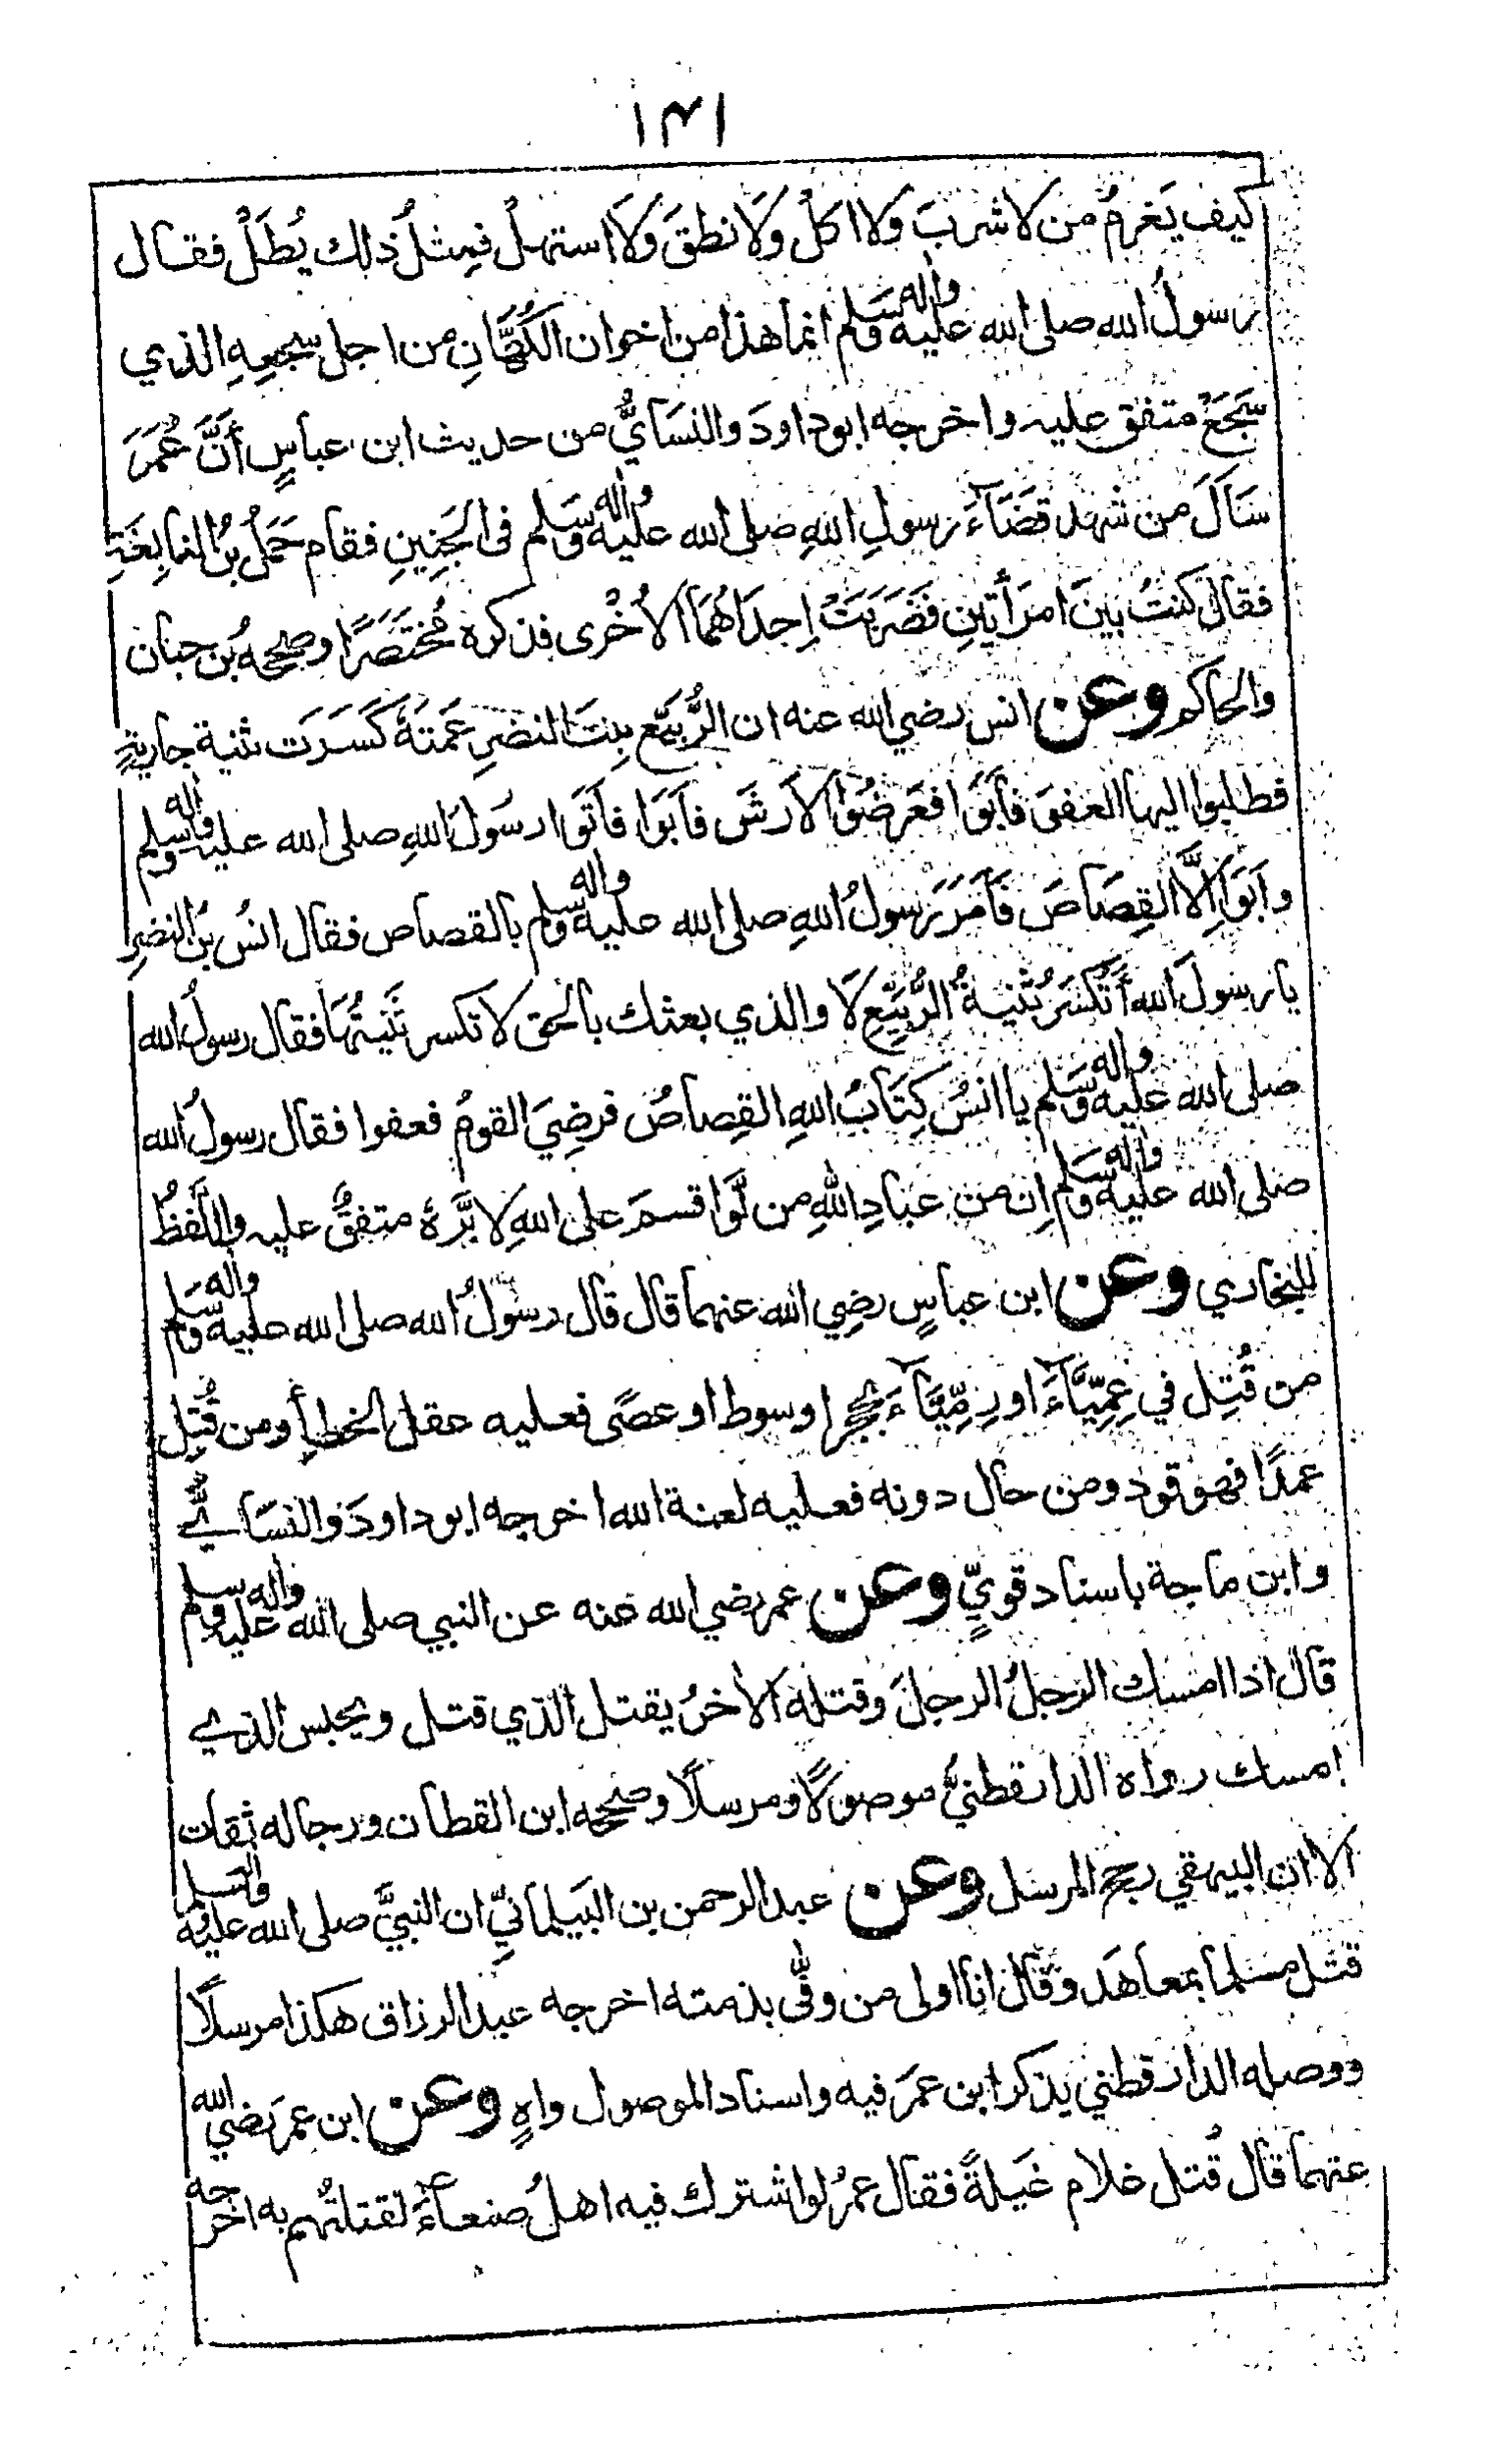 ١٣١
كيف يَغرمُ من لا شربَ ولا اكلْ ولَا نطقَ ولَا استهلْ فمِثلُ ذلك يُطَلّْ فقال
رسولُ الله صلى الله عليه واله وسَلم انما هذا من اخوان الكُهَّانِ من اجل سجعِهِ الذي
سَجَعَ متفق عليه واخرجه ابو داودَ والنسَايُّ من حديث ابن عباسٍ أنَّ عُمَرَ
سَأَلَ من شهد قَضَآءَ رسولِ اللهِ صلى الله عليه واله وسَلم فى الجَنِينِ فقام حَمَلُ بنُ النابِغَةِ
فقال كنتُ بينَ امرَأتينِ فَضَرَبَتْ اِحدَاهُمَا الاُخْرى فذكره مُختَصَرًا وصححه بُن حبان
والحاكم وعن انس رضي الله عنه ان الرُّبَيّع بِنتَ النضرِ عَمتَهٗ كَسَرَت ثنية جاريةٍ
فطلبوا اليها العفوَ فأبَوا فعَرضُوا الاَرشَ فاَبَوا فاَتَوا رسُولَ اللهِ صلى الله عليه واله وسلم
واَبَوا اِلَّا القِصَاصَ فَاَمَرَ رَسولُ اللهِ صلى الله عليه واله وسلم بالقصاص فقال انسُ بنُ النضرِ
يا رسولَ الله أَتُكسَرُ ثنيةُ الرُّبَيّعِ لَا والذي بعثك بالحق لا تكسر ثَنيتُهَا فقال رسولُ الله
صلى الله عليه واله وسَلم يا انسُ كِتَابُ اللهِ القِصاصُ فرضِيَ القومُ فعفوا فقال رسولُ الله
صلى الله عليه واله وسَلم اِن من عبادِ اللهِ من لَّو اقسمَ على اللهِ لابَرَّهٗ متفقٌ عليه واللَّفظُ
للبخاري وعن ابن عباسٍ رضِي الله عنهما قال قال رسولُ الله صلى الله عليه واله وسَلم
من قُتِل في عِمِّيَّآءَ او رِمِّيَّآءَ بحجر او سوط او عصًى فعليه عقل الخطأِ ومن قُتِل
عمدًا فهو قود ومن حال دونه فعليه لعنة الله اخرجه ابو داودَ والنسَائيُّ
وابن ماجة باسناد قويٍّ وعن عمر رضي الله عنه عن النبي صلى الله عليه واله وسلم
قال اذا امسك الرجلُ الرجلَ وقتله الاخرُ يقتل الذي قتل ويحبس الذي
امسك رواه الدارقطنيُّ موصولًا ومرسلًا وصححه ابن القطان ورجاله ثقات
الا ان البيهقي رجح المرسل وعن عبد الرحمن بن البَيلمانِيّ ان النبيَّ صلى الله عليه واله وسلم
قتل مسلما بمعاهَد وقال انا اولى من وفّٰى بذمته اخرجه عبد الرزاق هكذا مرسلًا
ووصله الدارقطني بذكر ابن عمرَ فيه واسناد الموصول واهٍ وعن ابن عمرَ رضي الله
عنهما قال قُتل غلام غَيلةً فقال عمرُ لو اشترك فيه اهلُ صنعآءَ لقتلتُهم به اخرجه